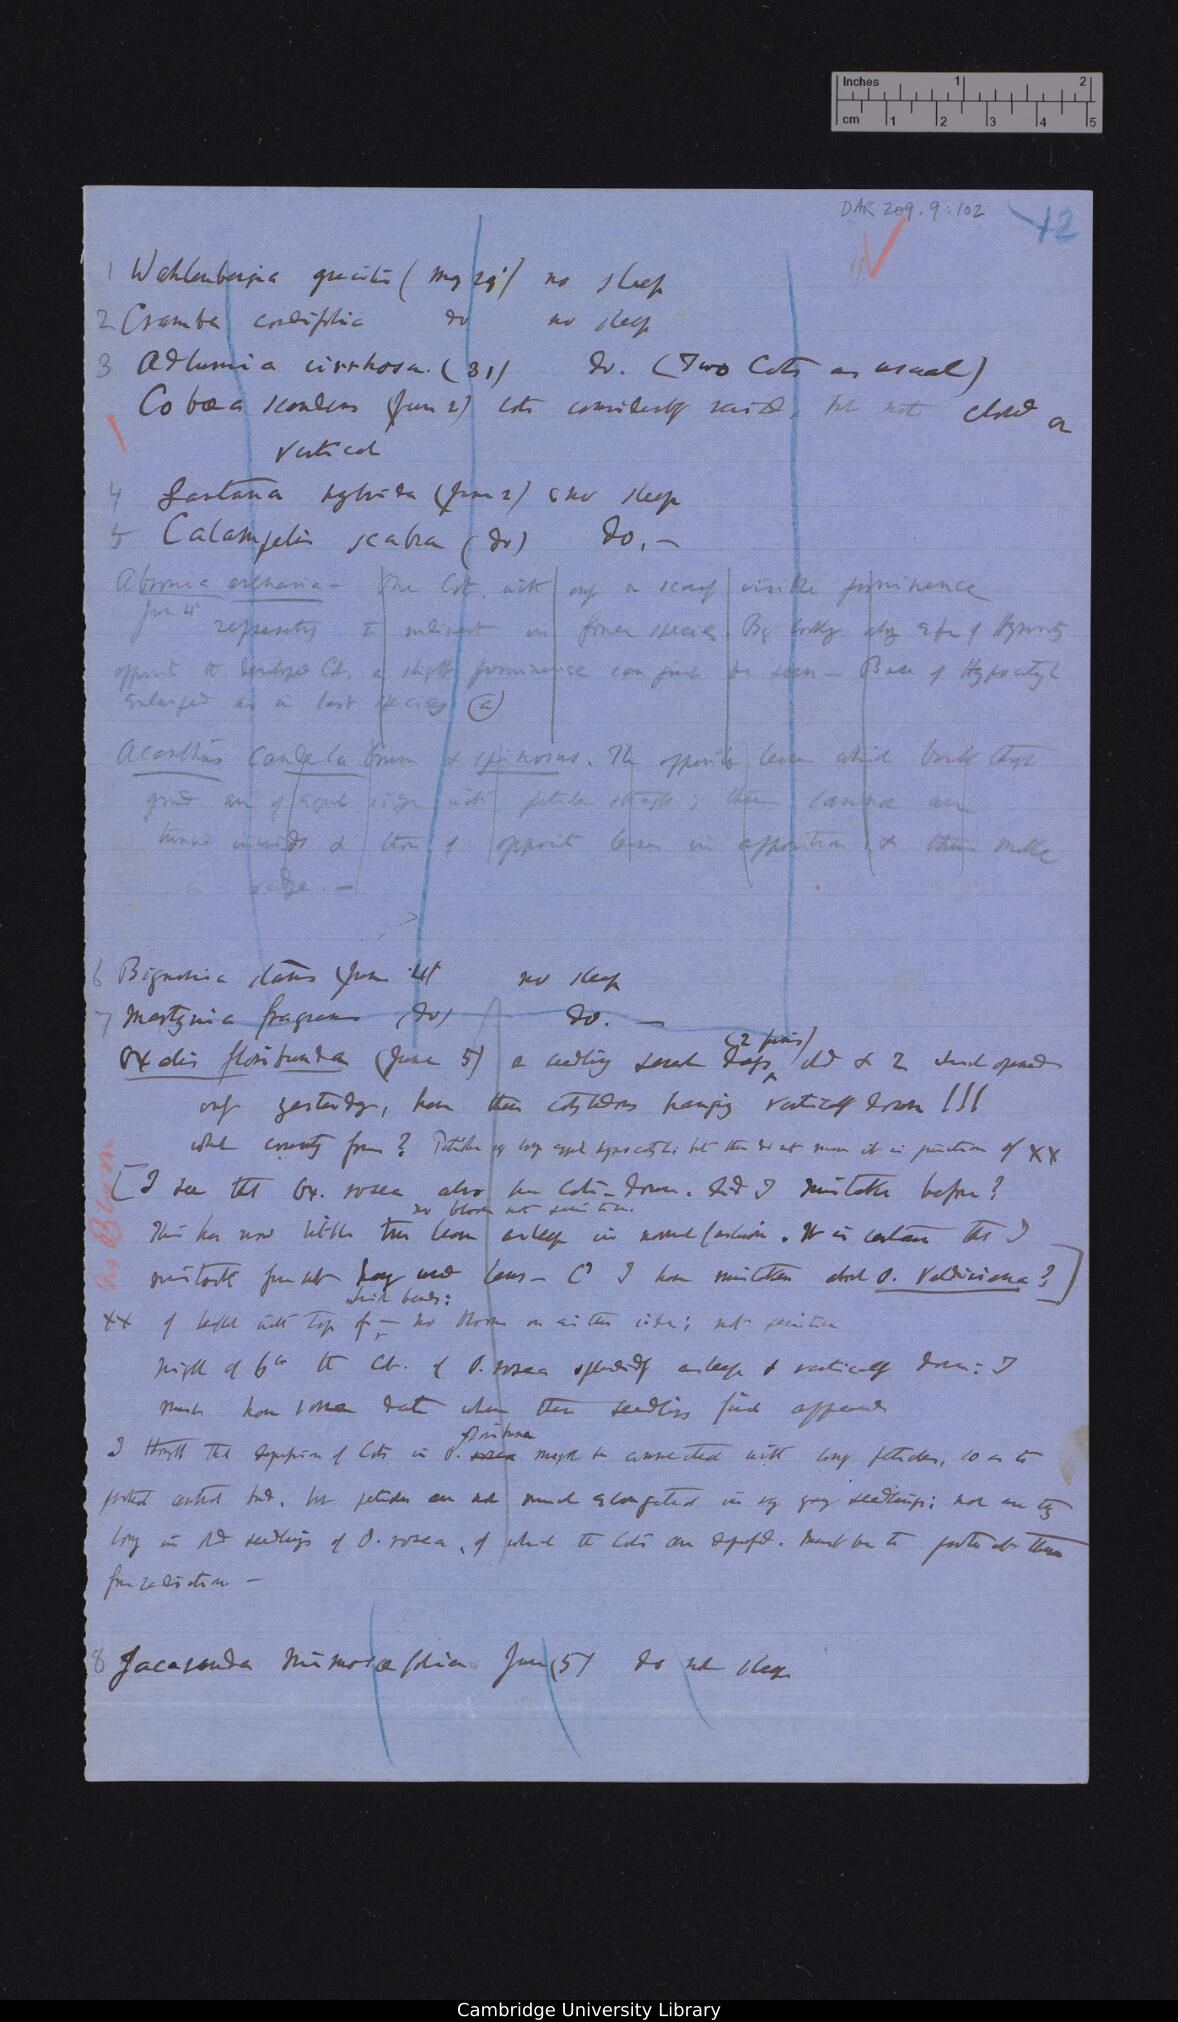 Inches 1 2
cm 1 2 3 4 5
DAR 209.9:102 42
1 Wahlenbergia gracilis (May 29) no sleep
2 Crambe cordifolia do no sleep
3 Adlumia cirrhosa. (31) do. (Two Cots as usual)
Cobaea scandens (June 2) cots considerably raised, but not closed or
vertical
4 hybrida (June 2) no sleep
5 Calampelis scabra (do) Do. —
Abronia arenaria — One Cot. with only a scarcely visible prominence
June 4th representing rudiment in former species. By looking along edge of Hypocotyl
opposite the developed Cot, a slight prominence can just be seen — Base of Hypocotyl
enlarged as in last species (a)
Acanthus candelabrum & spinosus. The opposite leaves which break through
ground are of equal size with petioles straight; their laminae are
turned inwards & those of opposite leaves in apposition & thus make
a wedge. —
6 Bignonia (June 4) no sleep
7 Martynia fragrans (do) do. —
(2 pairs)
Oxalis floribunda (June 5) a seedling several days old & 2 which opened
only yesterday, have their cotyledons hanging vertically down !!!
what country from? Petioles of long hypocotyl; but they do not move it is junction of XX
[I see that Ox. rosea also has Cots. down. Did I mistake before?
no bloom not sensitive.
This has now little true leaves asleep in normal fashion. It is certain that I
mistook from not having used lens — Cd I have mistaken about O. Valdiviana?]
No Bloom
which bends;
XX of with top of — no bloom on either side; not sensitive
Night of 6th the Cots. of O. rosea splendidly asleep & vertically down: I
must have some date when these seedlings first appeared
floribunda
I thought the depression of Cots in O. rosea might be connected with long petioles, so as to
protect central bud, but petioles are not much elongated in very young seedlings; nor are they
long in old seedlings of O. rosea, of which the Cots are depressed. Must be to protect them
from radiation —
8 Jacaranda mimosaefolia June (5) do not sleep
Cambridge University Library